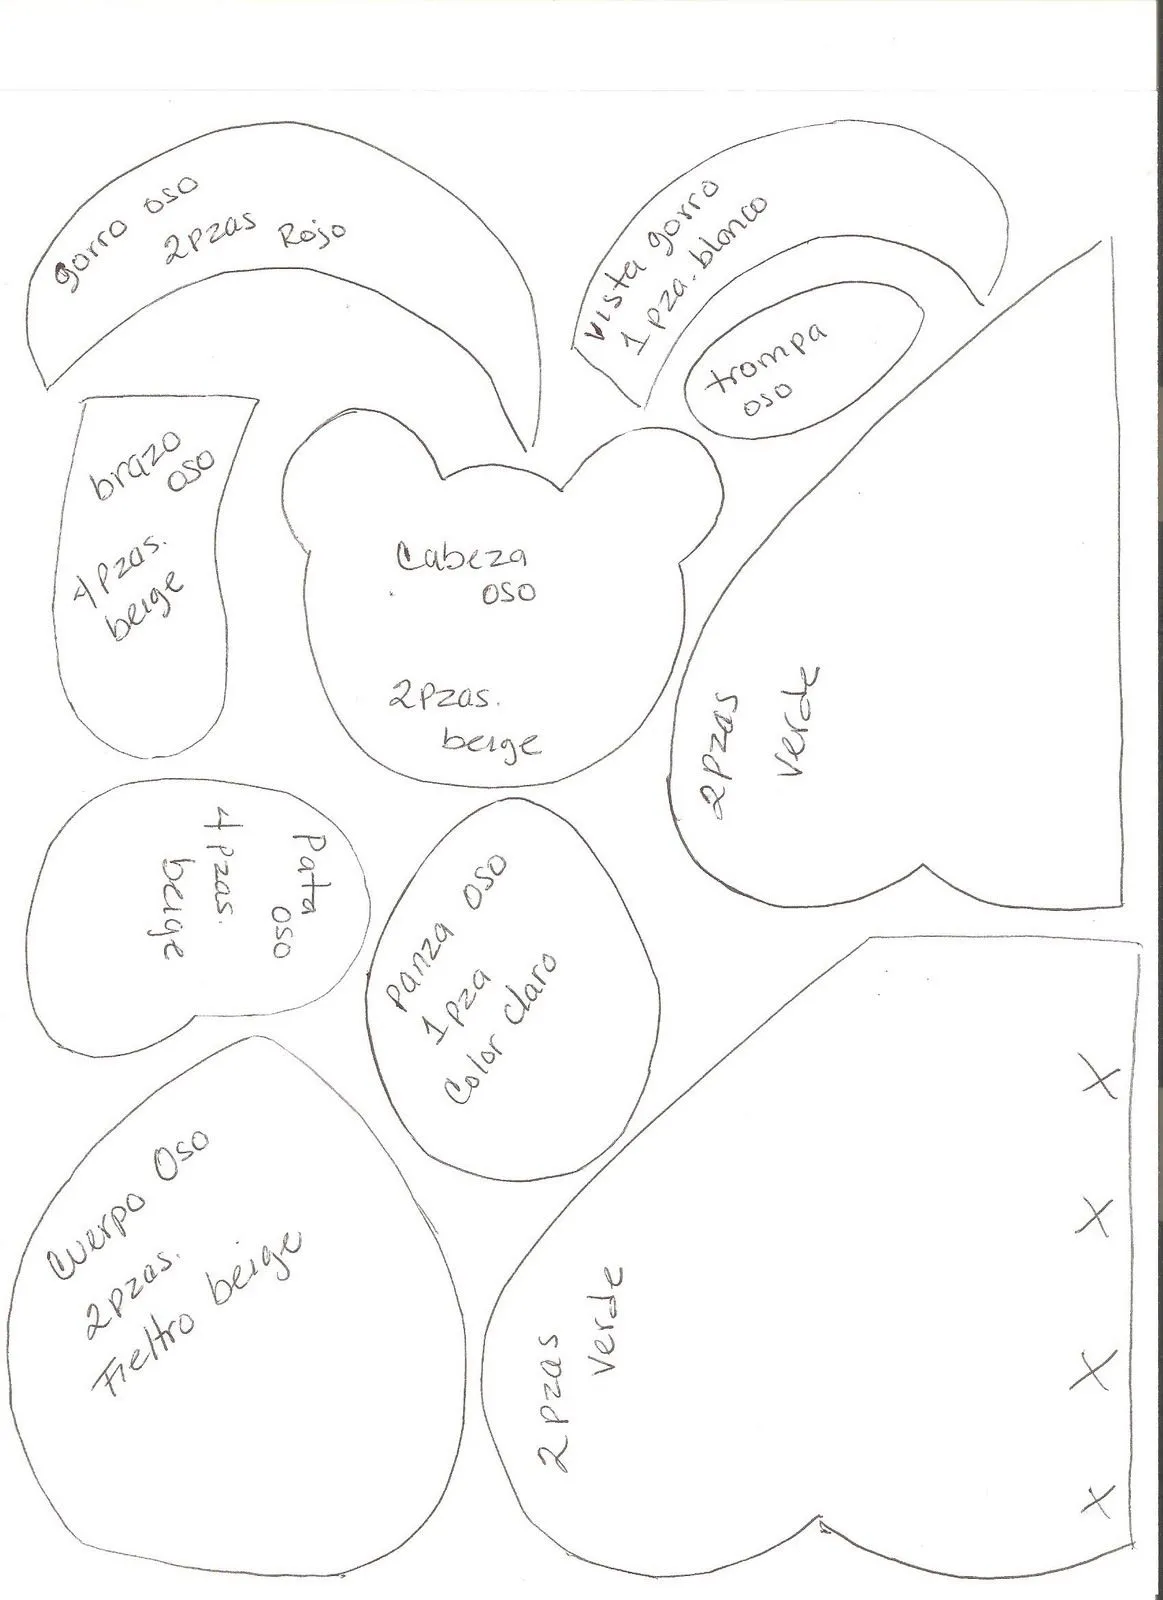 gorro oso
2Pzas Rojo
vista gorro
1 pza. blanco
trompa
oso
brazo
oso
4Pzas.
beige
Cabeza
oso
2Pzas.
beige
2Pzas
verde
Pata
oso
4pzas.
beige
Panza oso
1 pza
Color claro
Cuerpo Oso
2pzas.
Fieltro beige
2Pzas
verde
X
X
X
X